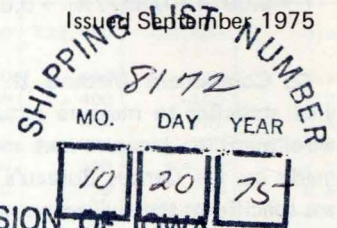 Issued September 1975
SHIPPING LIST NUMBER
8172
MO. DAY YEAR
10 20 75
SION OF IOWA